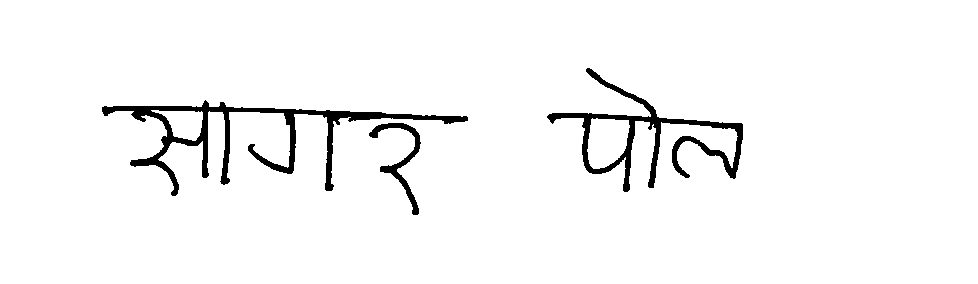 सागर पोल